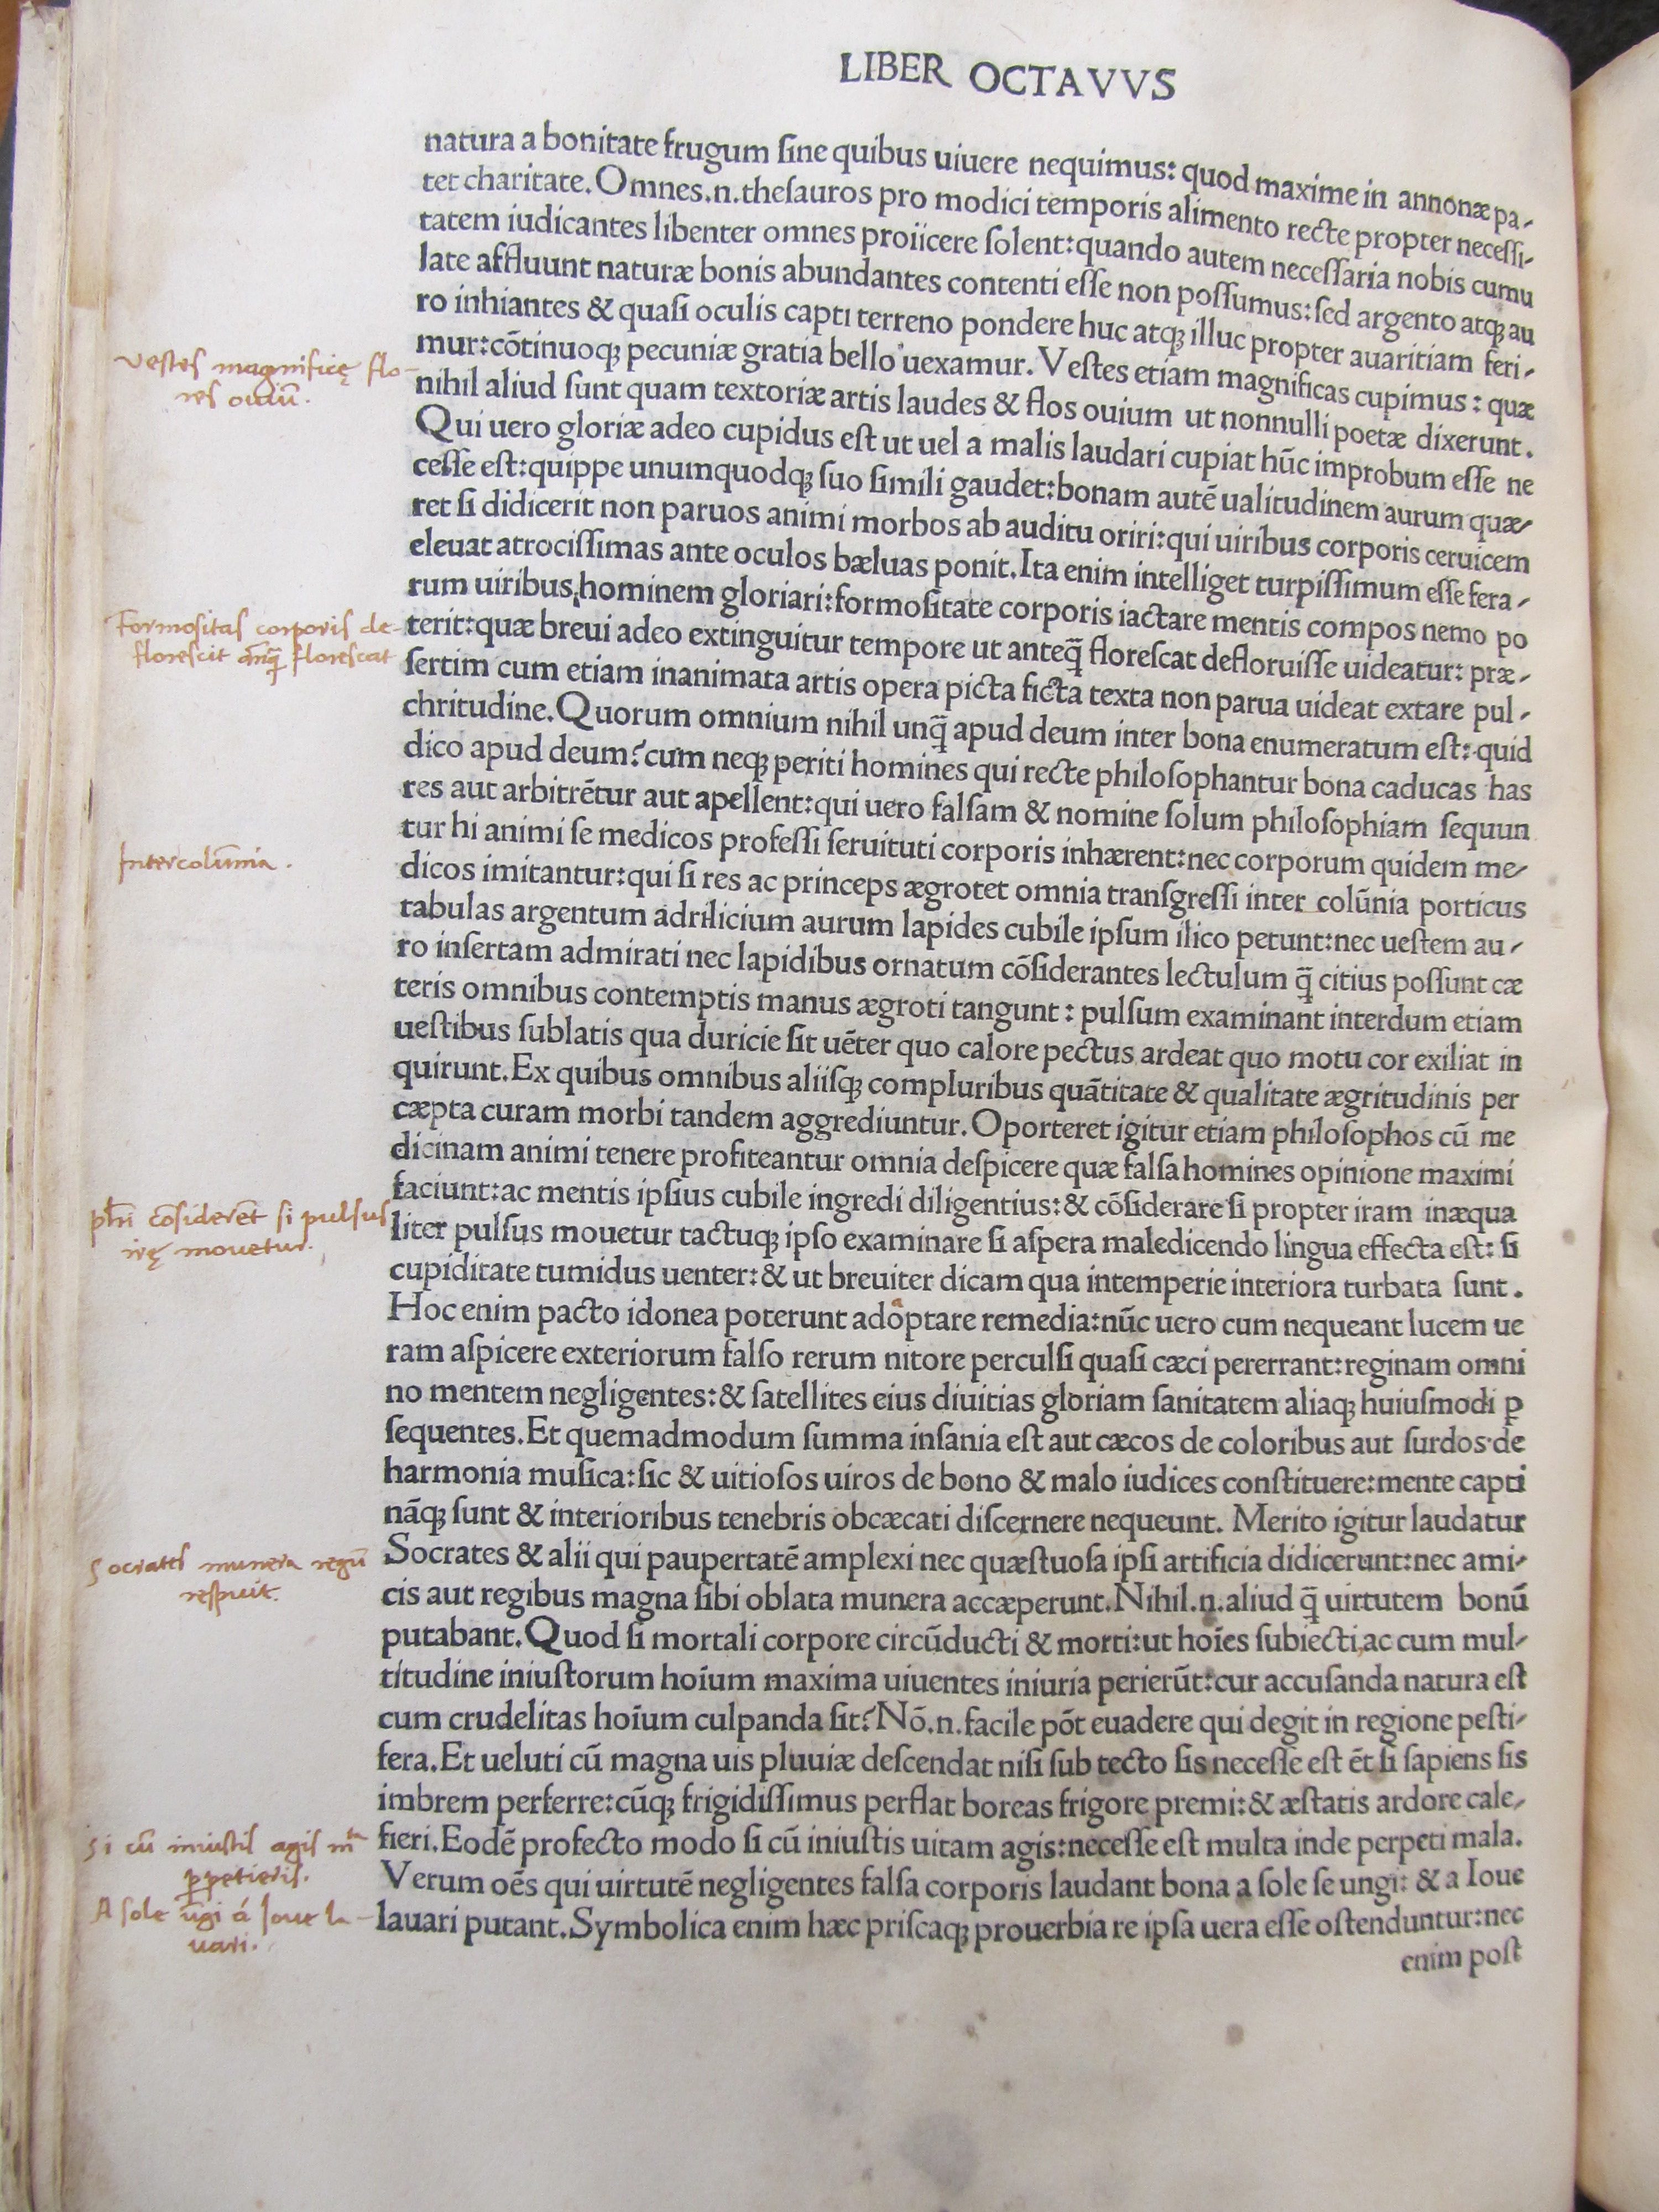 LIBER OCTAVVS
natura a bonitate frugum sine quibus uiuere nequimus: quod maxime in annonæ pa-
tet charitate. Omnes.n.thesauros pro modici temporis alimento recte propter necessi-
tatem iudicantes libenter omnes proiicere solent: quando autem necessaria nobis cumu
late affluunt naturæ bonis abundantes contenti esse non possumus: sed argento atqꝫ au
ro inhiantes & quasi oculis capti terreno pondere huc atqꝫ illuc propter auaritiam feri-
mur: cõtinuoqꝫ pecuniæ gratia bello uexamur. Vestes etiam magnificas cupimus: quæ
vestes magnificę flo-
res ouiũ.
nihil aliud sunt quam textoriæ artis laudes & flos ouium ut nonnulli poetæ dixerunt.
Qui uero gloriæ adeo cupidus est ut uel a malis laudari cupiat hũc improbum esse ne
cesse est: quippe unumquodqꝫ suo simili gaudet: bonam autẽ ualitudinem aurum quæ-
ret si didicerit non paruos animi morbos ab auditu oriri: qui uiribus corporis ceruicem
eleuat atrocissimas ante oculos bæluas ponit. Ita enim intelliget turpissimum esse fera-
rum uiribus hominem gloriari: formositate corporis iactare mentis compos nemo po
Formositas corporis de-
florescit anq̃ florescat
terit: quæ breui adeo extinguitur tempore ut anteq̃ florescat defloruisse uideatur: præ-
sertim cum etiam inanimata artis opera picta ficta texta non parua uideat extare pul-
chritudine. Quorum omnium nihil unq̃ apud deum inter bona enumeratum est: quid
dico apud deum? cum neqꝫ periti homines qui recte philosophantur bona caducas has
res aut arbitrẽtur aut apellent: qui uero falsam & nomine solum philosophiam sequun
tur hi animi se medicos professi seruituti corporis inhærent: nec corporum quidem me-
Intercolũnia.
dicos imitantur: qui si res ac princeps ægrotet omnia transgressi inter colũnia porticus
tabulas argentum adrilicium aurum lapides cubile ipsum ilico petunt: nec uestem au-
ro insertam admirati nec lapidibus ornatum cõsiderantes lectulum q̃ citius possunt cæ
teris omnibus contemptis manus ægroti tangunt: pulsum examinant interdum etiam
uestibus sublatis qua duricie sit uẽter quo calore pectus ardeat quo motu cor exiliat in
quirunt. Ex quibus omnibus aliisqꝫ compluribus quãtitate & qualitate ægritudinis per
cæpta curam morbi tandem aggrediuntur. Oporteret igitur etiam philosophos cũ me
dicinam animi tenere profiteantur omnia despicere quæ falsa homines opinione maximi
faciunt: ac mentis ipsius cubile ingredi diligentius: & cõsiderare si propter iram inæqua
phi cõsiderẽt si pulsus
irę mouetur.
liter pulsus mouetur tactuqꝫ ipso examinare si aspera maledicendo lingua effecta est: si
cupiditate tumidus uenter: & ut breuiter dicam qua intemperie interiora turbata sunt.
Hoc enim pacto idonea poterunt adoptare remedia: nũc uero cum nequeant lucem ue
ram aspicere exteriorum falso rerum nitore perculsi quasi cæci pererrant: reginam omni
no mentem negligentes: & satellites eius diuitias gloriam sanitatem aliaqꝫ huiusmodi ꝑ
sequentes. Et quemadmodum summa insania est aut cæcos de coloribus aut surdos de
harmonia musica: sic & uitiosos uiros de bono & malo iudices constituere: mente capti
nãqꝫ sunt & interioribus tenebris obcæcati discernere nequeunt. Merito igitur laudatur
Socrates munera regũ
respuit.
Socrates & alii qui paupertatẽ amplexi nec quæstuosa ipsi artificia didicerunt: nec ami-
cis aut regibus magna sibi oblata munera accæperunt. Nihil.n.aliud q̃ uirtutem bonũ
putabant. Quod si mortali corpore circũducti & morti: ut hoĩes subiecti ac cum mul-
titudine iniustorum hoĩum maxima uiuentes iniuria perierũt: cur accusanda natura est
cum crudelitas hoĩum culpanda sit? Nõ.n.facile põt euadere qui degit in regione pesti-
fera. Et ueluti cũ magna uis pluuiæ descendat nisi sub tecto sis necesse est ẽt si sapiens sis
imbrem perferre: cũqꝫ frigidissimus perflat boreas frigore premi: & æstatis ardore cale-
Si cũ iniustis agis mᵗᵃ
ꝑpetieris.
fieri. Eodẽ profecto modo si cũ iniustis uitam agis: necesse est multa inde perpeti mala.
Verum oẽs qui uirtutẽ negligentes falsa corporis laudant bona a sole se ungi: & a Ioue
A sole ũgi á Ioue la-
uari.
lauari putant. Symbolica enim hæc priscaqꝫ prouerbia re ipsa uera esse ostenduntur: nec
enim post